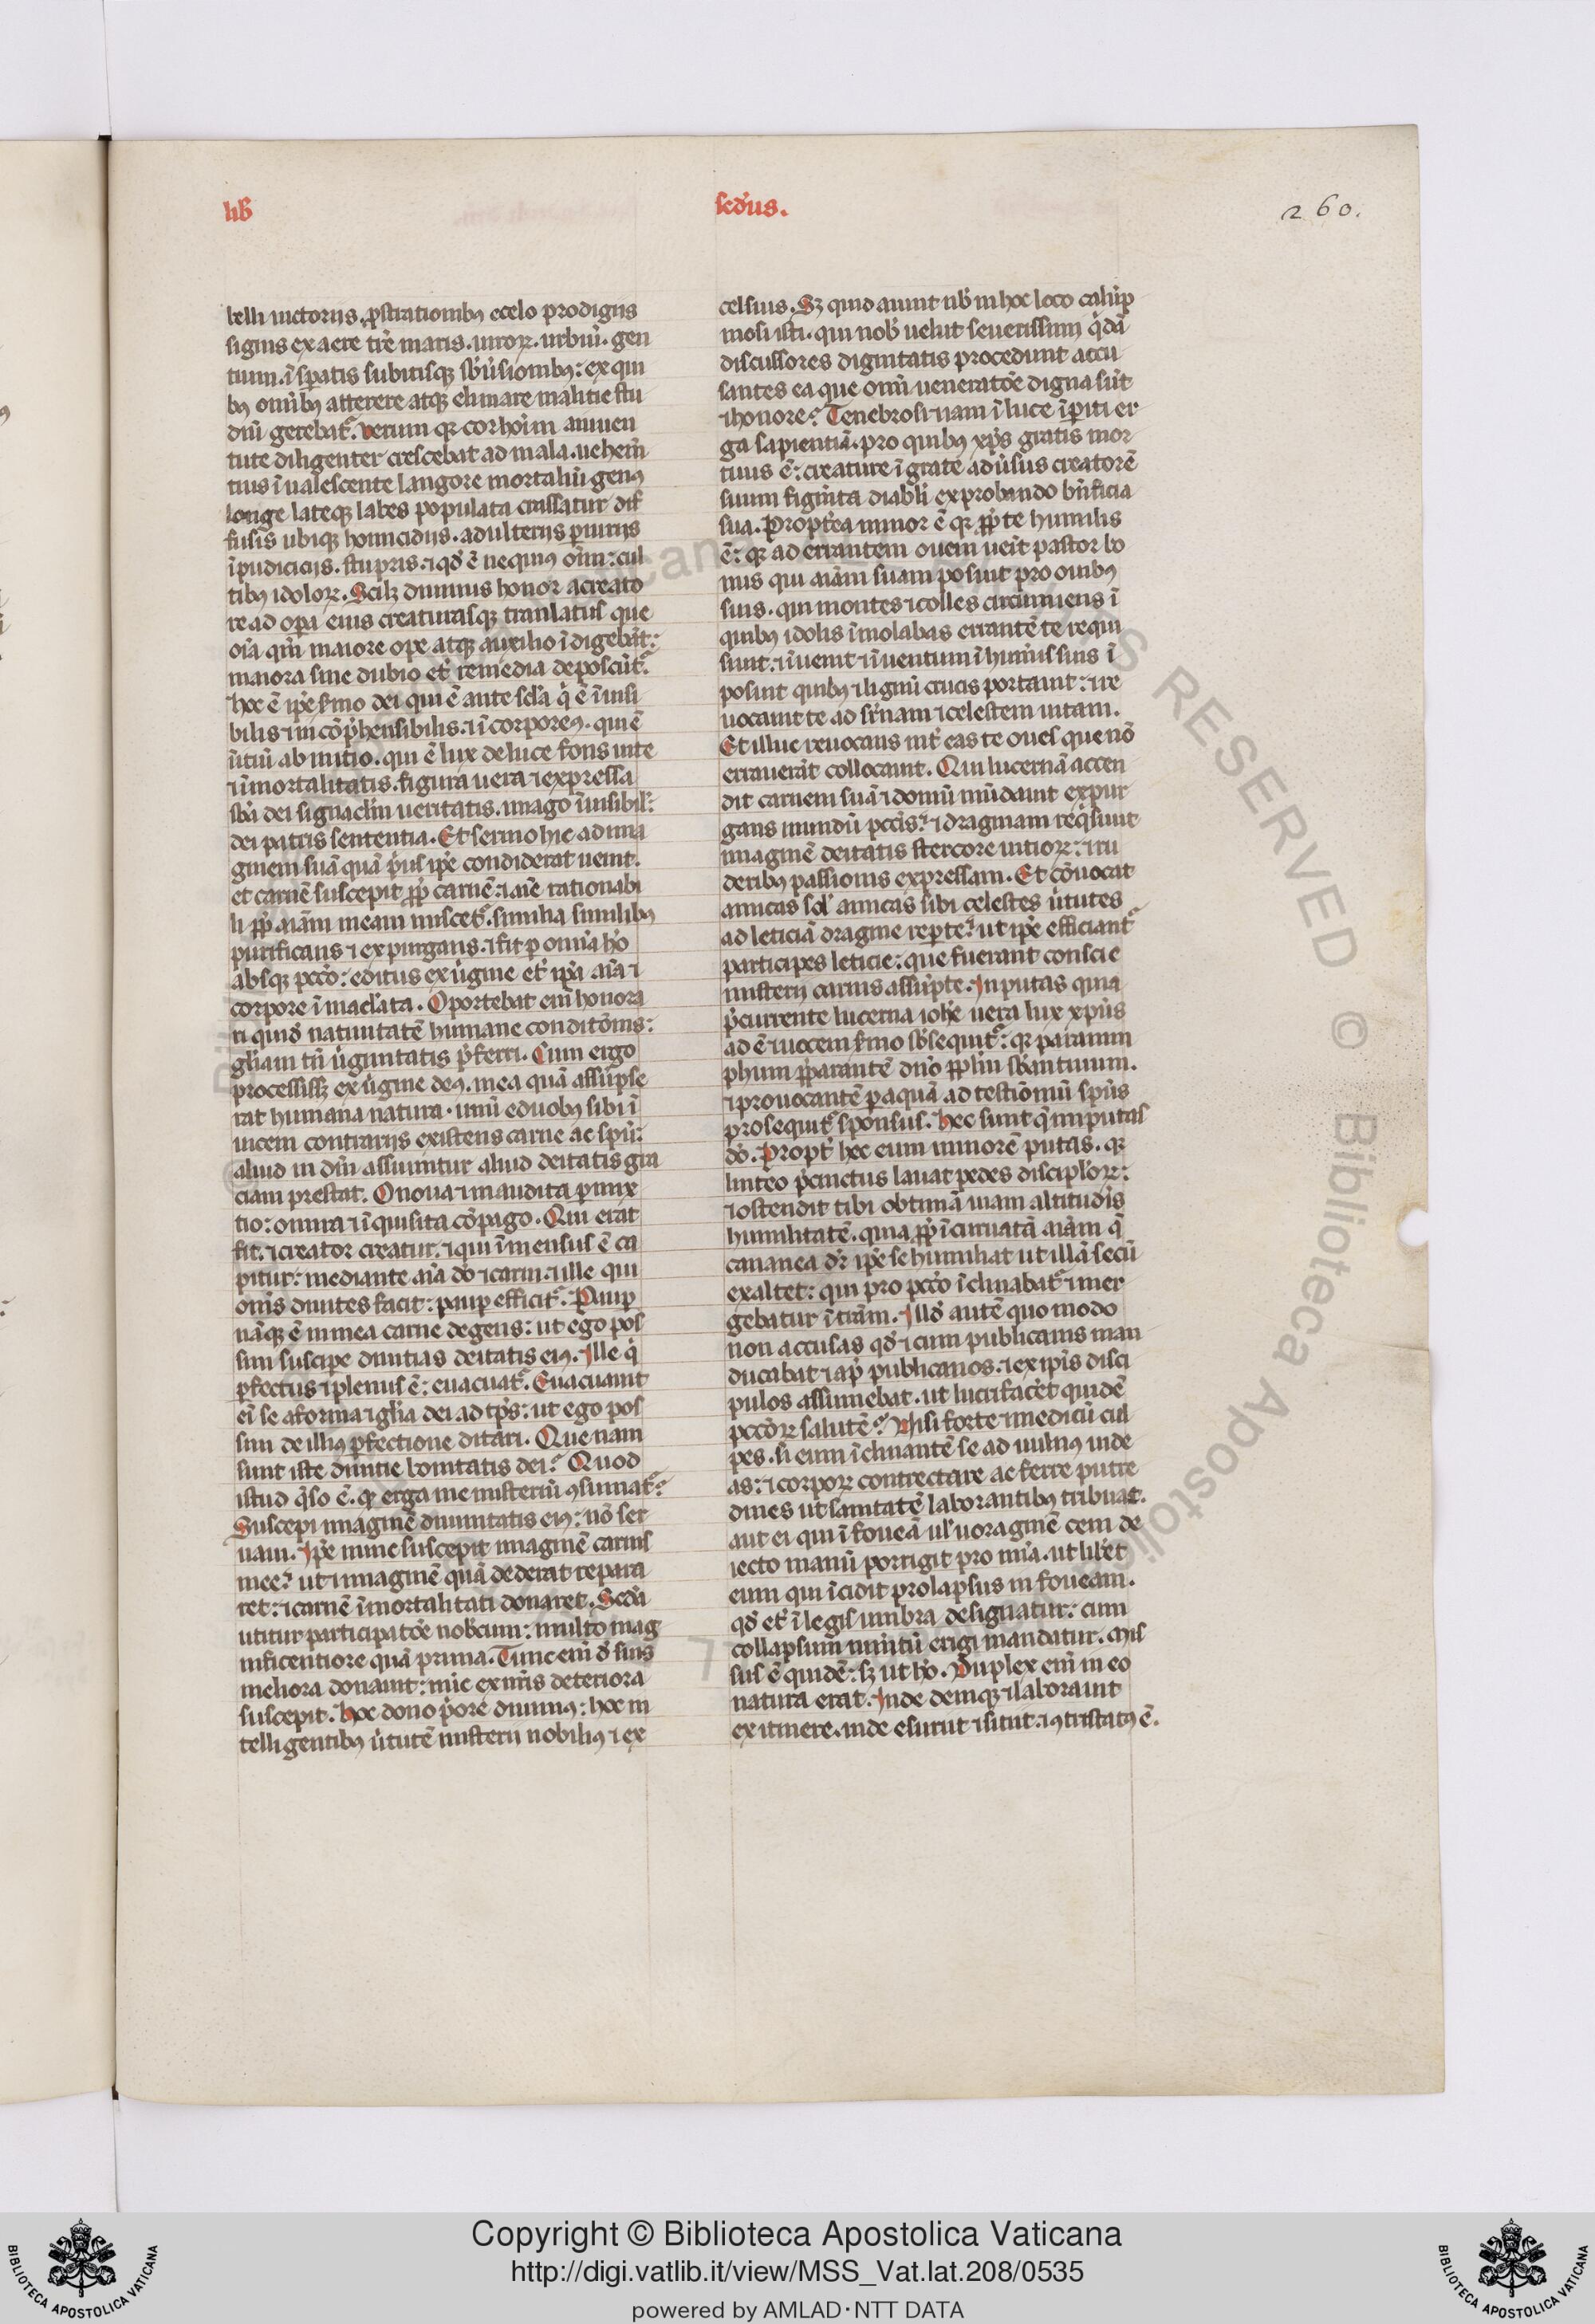 lib̃
sec̃dus.
260.
belli uictoriis. ꝓstrationibꝯ ecelo prodigiis
signis ex aere tr̃e maris. uiroꝝ. urbiũ. gen
tium. ĩsperatis subitisqꝫ sb̾uersionibꝯ: ex qui
bꝯ omĩbꝯ atterere atqꝫ elimare malitie stu
diũ gerebat᷑. Verum qꝛ cor hoĩm a iuuen
tute diligenter crescebat ad mala. uehem̃
tius ĩualescente langore mortaliũ genꝯ
longe lateqꝫ labes populata crassatur dif
fusis ubiqꝫ homicidiis. adulteriis ꝑiuriis
ĩpudiciciis. stupris. ⁊ qd̾ ẽ nequiꝯ oĩm: cul
tibꝯ idoloꝝ. Scilꝫ diuinus honor a creato
re ad oꝑa eius creaturasqꝫ tranlatus que
oĩa qm̃ maiore ope atqꝫ auxilio ĩdigebãt:
maiora sine dubio et̾ remedia deposcũt᷑.
Hoc ẽ ip̃e s̾mo dei qui ẽ ante sc̃la q̾ ẽ ĩuisi
bilis ⁊ in cõp̾hensibilis. ⁊ ĩcorporeꝯ. qui ẽ
ũtiũ ab initio. qui ẽ lux de luce fons uite
⁊ ĩmortalitatis. figura uera ⁊ expressa
sb̃a dei signaclm̃ ueritatis. imago ĩuisibil̾:
dei patris sententia. Et sermo hic ad ima
ginem suã quã p̾us ip̃e condiderat uenit.
et carnẽ suscepit ꝓp̃ carnẽ: ⁊ aĩe rationabi
li ꝓp̃ aĩam meam miscet᷑. similia similibꝯ
purificans ⁊ expurgans. ⁊ fit ꝑ omnia hõ
absqꝫ pccõ: editus ex uirgine et̾ ip̃a aĩa ⁊
corpore ĩmaclata. Oportebat eni honora
ri quid̾ natiuitatẽ humane conditõnis:
gl̃iam tñ ũginitatis p̾ferri. Cum ergo
processissꝫ ex ũgine deꝯ. mea quã assũpse
rat humana natura. unũ e duobꝯ sibi ĩ
uicem contrariis existens carne ac spũ:
aliud in dm̃ assumitur aliud deitatis gra
ciam prestat. O noua ⁊ inaudita ꝑmix
tio: o mira ⁊ ĩquisita cõpago. Qui erat
fit. ⁊ creator creatur. ⁊ qui ĩmensus ẽ ca
pitur: mediante aĩa dõ ⁊ carni: ⁊ ille qui
om̃s diuites facit: pauꝑ efficit᷑. Pauꝑ
nãqꝫ ẽ in mea carne degens: ut ego pos
sim suscipe diuitias deitatis eiꝯ. Ille q̾
ꝑfectus ⁊ plenus ẽ: euacuat᷑. Euacuauit
eĩ se a forma ⁊ gl̃ia dei ad tp̃s: ut ego pos
sim de illiꝯ ꝑfectione ditari. Que nam
sunt iste diuitie bonitatis dei? Quod
istud q̾so ẽ. qꝛ erga me misteriũ ꝯsumat᷑?
Suscepi imaginẽ diuinitatis eiꝯ: nõ ser
uaui. Ip̃e nunc suscepit imaginẽ carnis
mee: ut ⁊ imaginẽ quã dederat repara
ret: ⁊ carnẽ ĩmortalitati donaret. Sc̃da
utitur participatõe nobc̃um: multo mag
nificentiore quã prima. Tunc eni d̾ suis
meliora donauit: nũc ex nr̃is deteriora
suscepit. Hoc dono p̾ore diuinꝯ: hoc in
telligentibꝯ ũtutẽ misterii nobiliꝯ ⁊ ex
celsius. Sꝫ quid aiunt nb̾ in hoc loco calũp
niosi isti. qui nob̾ uelut seuerissimi q̾dã
discussores dignitatis procedunt accu
santes ea que omĩ ueneratõe digna sũt
⁊ honore? Tenebrosi nam ĩ luce ĩꝑiti er
ga sapientiã. pro quibꝯ xp̃s gratis mor
tuus ẽ: creature ĩgrate adũsus creatorẽ
suum figmẽta diabli exprobrando bñficia
sua. Propterea minor ẽ qꝛ ꝓp̾ te humilis
ẽ: qꝛ ad errantem ouem ueĩt pastor bo
nus qui aĩam suam posuit pro ouibꝯ
suis. qui montes ⁊ colles circumiens ĩ
quibꝯ idolis ĩmolabas errantẽ te requi
siuit. ⁊ ĩuenit ⁊ ĩuentum ĩ hum̃is suis ĩ
posuit quibꝯ ⁊ lignũ crucis portauit: ⁊ re
uocauit te ad sr̃nam ⁊ celestem uitam.
Et illuc reuocans int̾ eas te oues que nõ
errauerãt collocauit. Qui lucernã accen
dit carnem suã ⁊ domũ mũdauit expur
gans mundũ pccis: ⁊ dragmam req̾siuit
imaginẽ deitatis stercore uitioꝝ: ⁊ ru
deribꝯ passionis expressam. Et cõuocat
amicas sol̾ amicas sibi celestes ũtutes
ad leticiã dragme reꝑte: ut ip̃e efficiant᷑
participes leticie: que fuerant conscie
misterii carnis assũpte. Inputas quia
p̾currente lucerna ioh̃e uera lux xp̃us
ad ẽ ⁊ uocem s̾mo sb̾sequit᷑: qꝛ paranim
phum p̾parantẽ dño ppl̃m sb̃antiuum.
⁊ prouocantẽ ꝑ aquã ad testimoniũ sp̃us
prosequit᷑ sponsus. Hec sunt q̾ imputas
dõ. Propt̾ hec eum minorẽ putas. qꝛ
linteo p̾cinctus lauat pedes disciploꝝ:
⁊ ostendit tibi obtimã uiam altitudĩs
humilitatẽ. quia ꝓp̾ ĩcuruatã aĩam q̾
cananea dr̃ ip̃e se humiliat ut illã secũ
exaltet: qui pro pccõ ĩclinabat᷑ ⁊ mer
gebatur ĩ trãm. Illd̾ autẽ quo modo
non accusas qd̾ ⁊ cum publicanis man
ducabat ⁊ ap̾ publicanos. ⁊ ex ip̃is disci
pulos assumebat. ut lucrifacẽt quidẽ
pccõꝝ salutẽ? Nisi forte ⁊ medicũ cul
pes. si eum ĩclinantẽ se ad uulnꝯ uide
as: ⁊ corpoꝝ contrectare ac ferre putre
dines ut sanitatẽ laborantibꝯ tribuat.
aut ei qui ĩ foueã ul̾ uoraginẽ ceni de
iecto manũ porrigit pro mĩa. ut lib̾et
eum qui ĩcidit prolapsus in foueam.
qd̾ et̾ ĩ legis umbra designatur: cum
collapsum iumtũ erigi mandatur. Mis
sus ẽ quidẽ: sꝫ ut hõ. Duplex eni in eo
natura erat. Inde deniqꝫ ⁊ laborauit
ex itinere. inde esuriit ⁊ sitiit. ⁊ ꝯtristatꝯ ẽ.
Copyright © Biblioteca Apostolica Vaticana
http://digi.vatlib.it/view/MSS_Vat.lat.208/0535
powered by AMLAD·NTT DATA